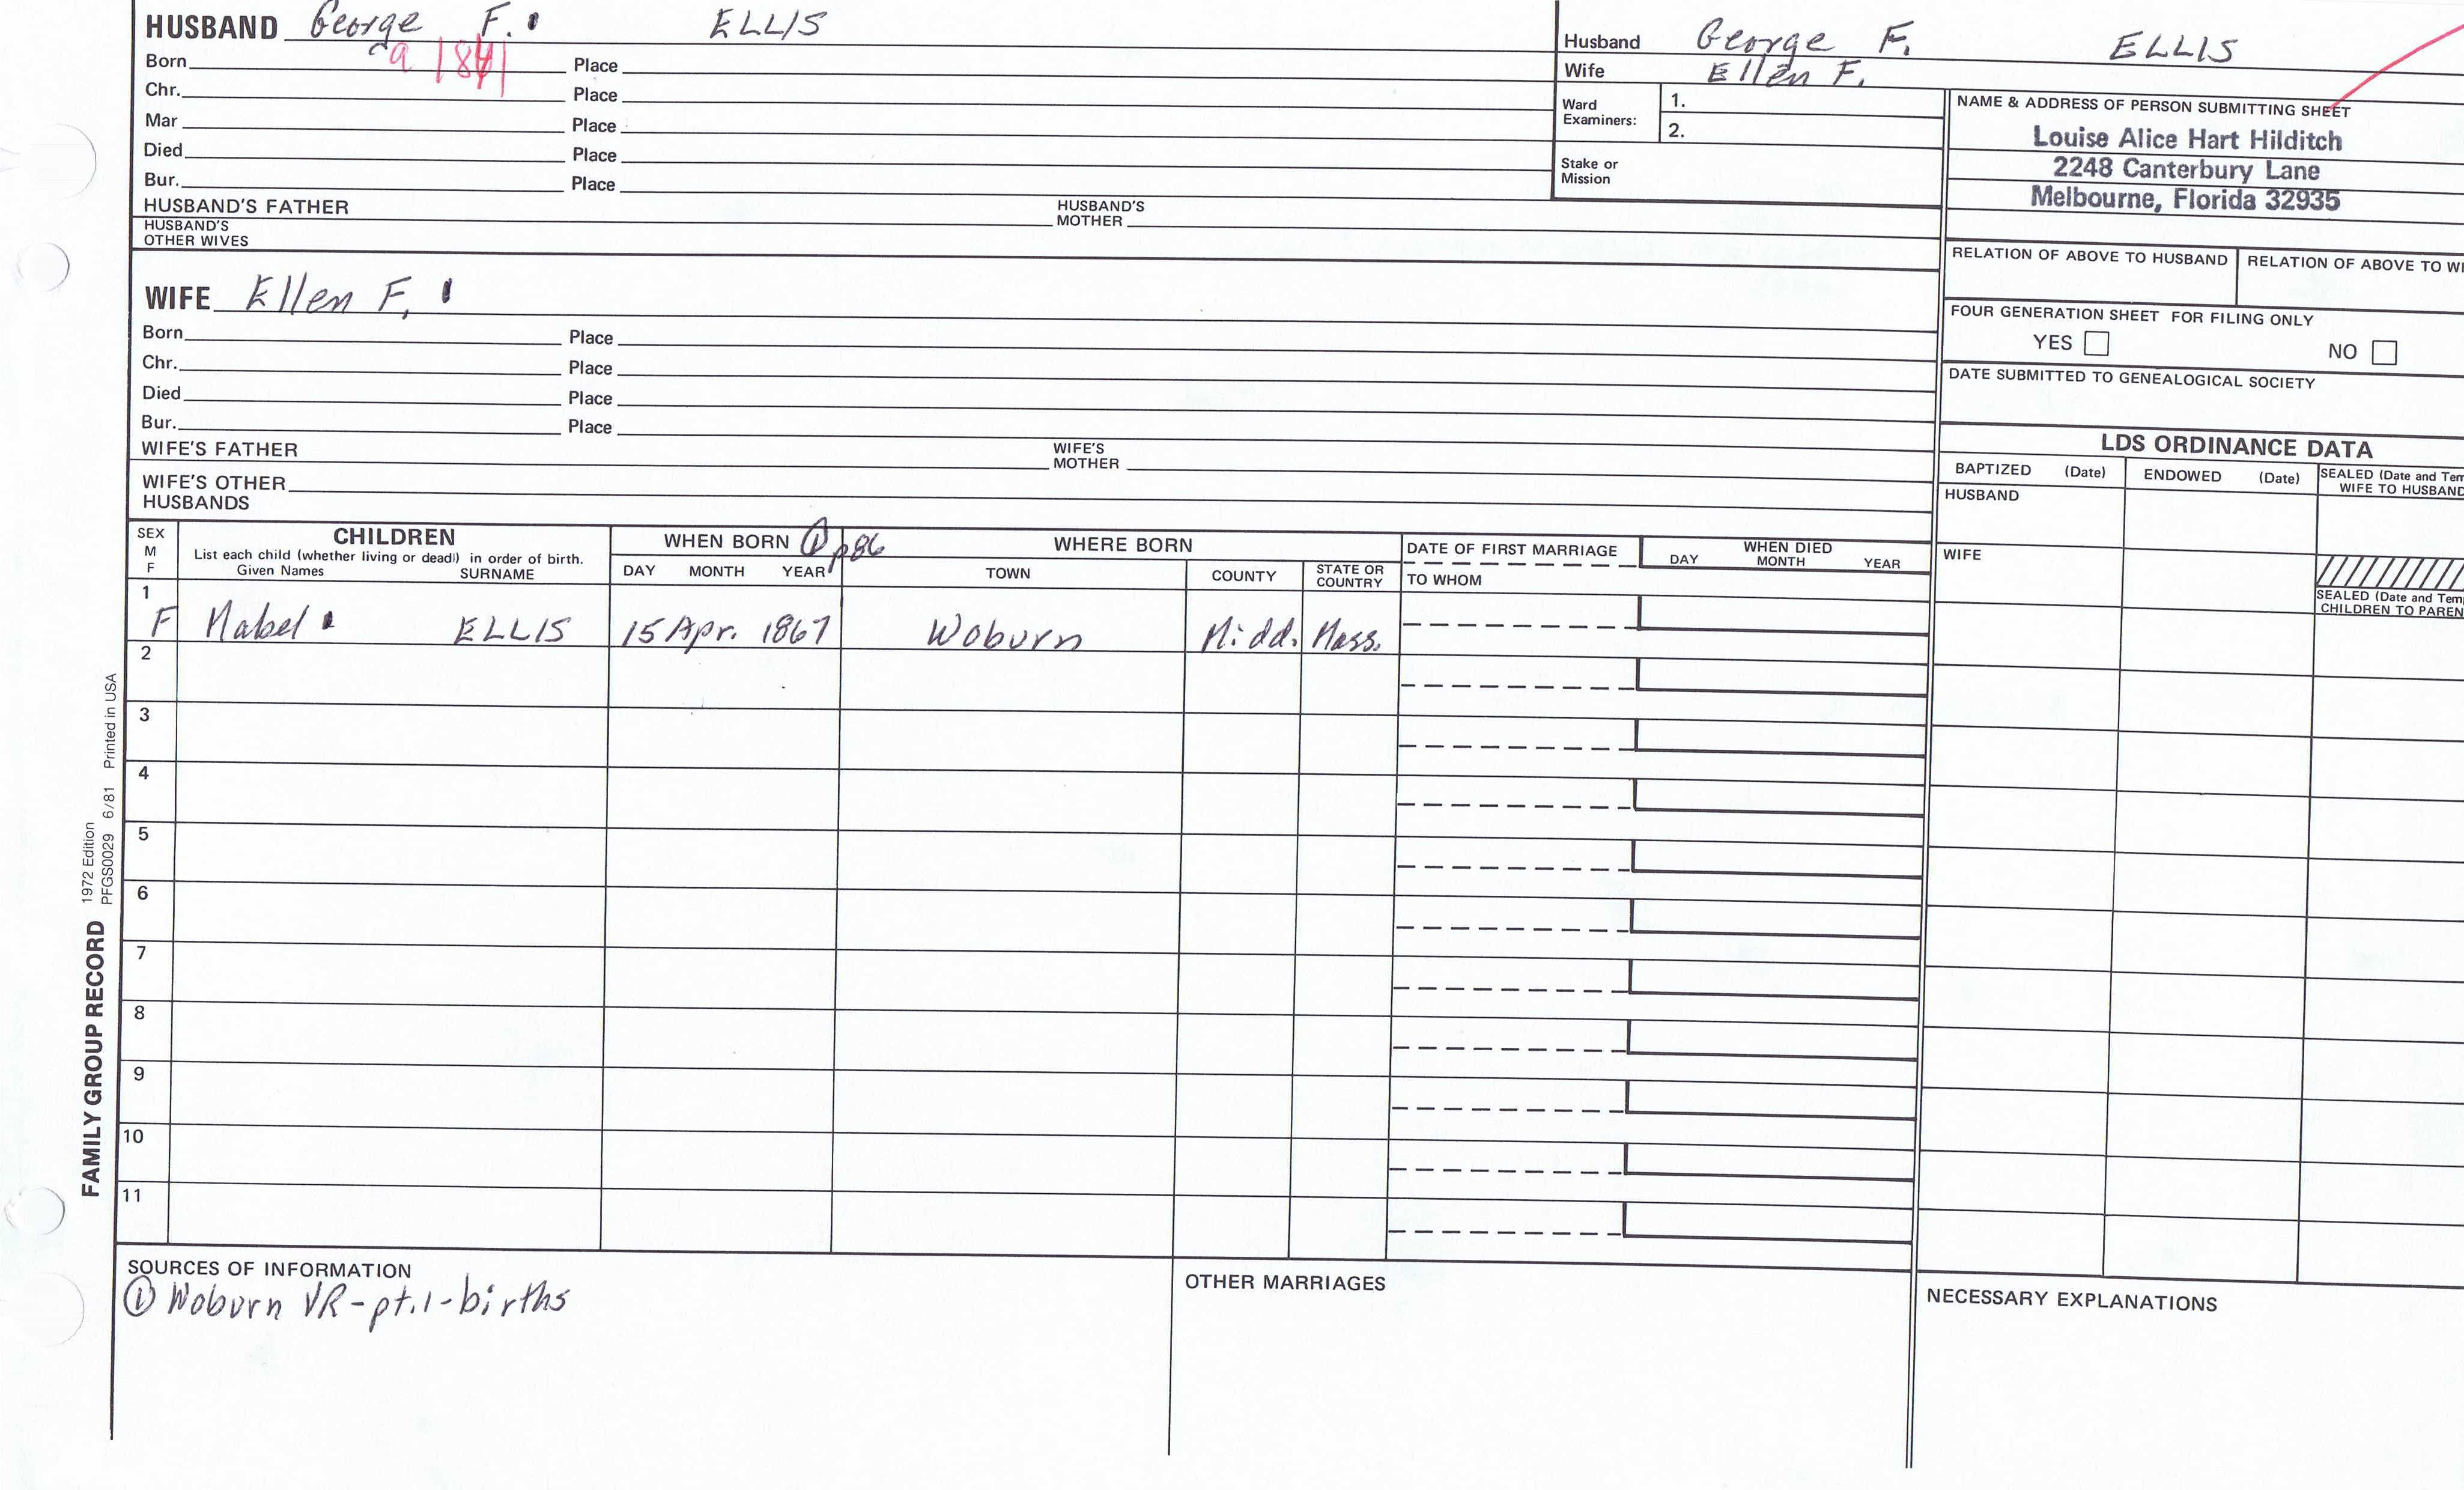 HUSBAND George F. ELLIS
Born ca 1841 Place
Chr. Place
Mar Place
Died Place
Bur. Place
HUSBAND'S FATHER HUSBAND'S MOTHER
HUSBAND'S OTHER WIVES
Husband George F. ELLIS
Wife Ellen F.
Ward Examiners: 1.
2.
Stake or Mission
NAME & ADDRESS OF PERSON SUBMITTING SHEET
Louise Alice Hart Hilditch
2248 Canterbury Lane
Melbourne, Florida 32935
RELATION OF ABOVE TO HUSBAND RELATION OF ABOVE TO WI
FOUR GENERATION SHEET FOR FILING ONLY
YES NO
DATE SUBMITTED TO GENEALOGICAL SOCIETY
WIFE Ellen F.
Born Place
Chr. Place
Died Place
Bur. Place
WIFE'S FATHER WIFE'S MOTHER
WIFE'S OTHER HUSBANDS
LDS ORDINANCE DATA
BAPTIZED (Date) ENDOWED (Date) SEALED (Date and Tem
WIFE TO HUSBAND
HUSBAND
WIFE
SEALED (Date and Tem
CHILDREN TO PAREN
SEX M F
CHILDREN
List each child (whether living or dead) in order of birth.
Given Names SURNAME
WHEN BORN ① p86
DAY MONTH YEAR
WHERE BORN
TOWN COUNTY STATE OR COUNTRY
DATE OF FIRST MARRIAGE
TO WHOM
WHEN DIED
DAY MONTH YEAR
1
F Mabel ELLIS 15 Apr. 1867 Woburn Midd. Mass.
2
3
4
5
6
7
8
9
10
11
FAMILY GROUP RECORD
1972 Edition
PFGS0029 6/81 Printed in USA
SOURCES OF INFORMATION
① Woburn VR-pt.1-births
OTHER MARRIAGES
NECESSARY EXPLANATIONS